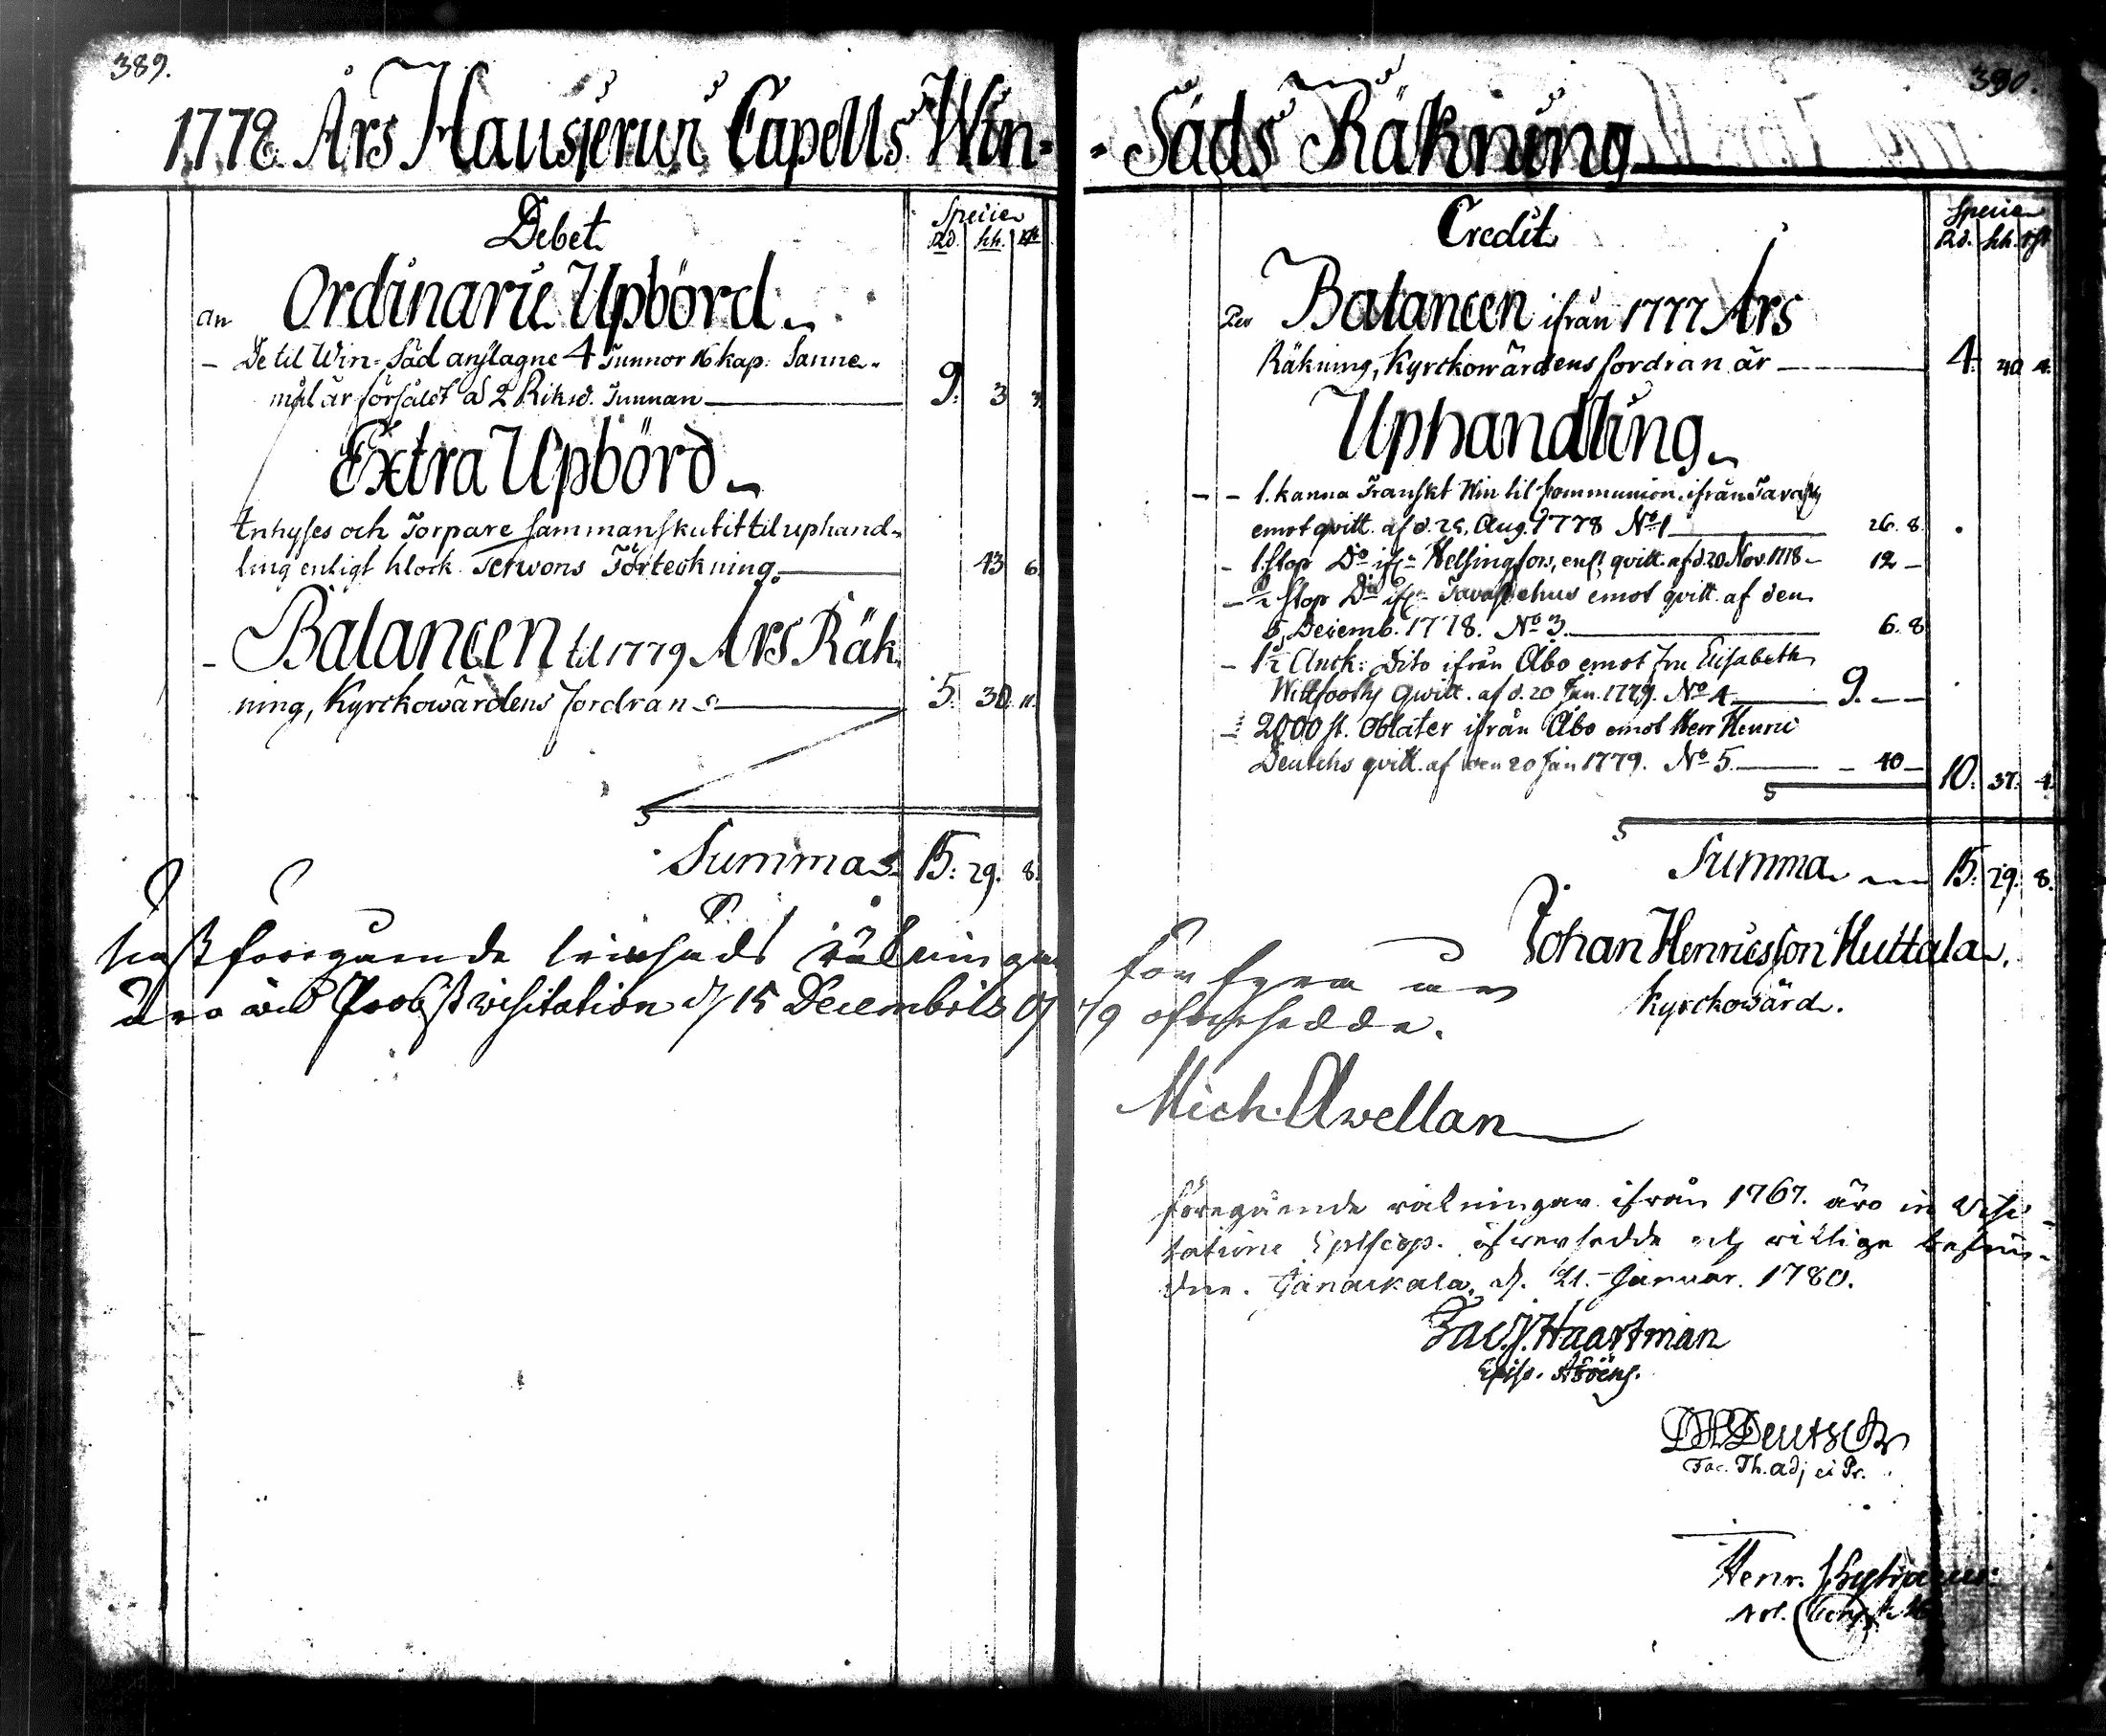 389.
1778 Års Hausjerwi Capells Win-
Debet
Specier
Rd. ſk. rst
Ordinarie Upbörd
an
- De til Win-Säd anslagne 4 Tunnor 16 kap: Sanne-
mål är försåldt a 2 Riksd. Tunnan 9. 3 3
Extra Upbörd
Inhyses och Torpare sammanskutit til uphand-
ling enligt klock. Förteckning 43 6
- Balancen til 1779 Års Räk
ning, Kyrckowärdens fordran 5. 30. 11.
Summa 15. 29. 8.
föregående winsäds räkningar
äro wid Probst visitation d 15 Decembris
390.
- Säds Räkning
Credit
Specie
Rd. ſk. rst
Per Balancen ifrån 1777 Års
Räkning, Kyrckowärdens fordran är 4. 40 4.
Uphandling
- - 1. kanna Franskt Win til Communion ifrån
emot qvitt. af d. 25. Aug. 1778 No 1 26. 8.
- 1. Stop Do ifr. Helsingfors, enl. qvitt. af d. 20 Nov. 1778 12 -
- ½ Stop Do ifr. Tavastehus emot qvitt. af den
5. Decemb. 1778. No 3. 6. 8
- 1½ Anck: Dito ifrån Åbo emot Fru Elisabeth
Wittfooths Qwitt. af d. 20 Jan. 1779. No 4 9. - -
- 2000 st. Oblater ifrån Åbo emot Herr Henric
Deutchs qvitt. af den 20 Jan 1779. No 5. - 40 -
10. 37. 4.
Summa 15. 29. 8.
Johan Henricsson Huttala.
Kyrckowärd.
för fyra år
79 öfwersedde.
Mich. Avellan
föregående räkningar ifrån 1767. äro in Visi-
tatione Episcop. öfwersedde och riktige befun-
dne. Janackala, d. 21. Januar. 1780.
Jac. J. Haartman
Episc. Aboens.
Deutsch
Fac. Th. adj et Pr.
Henr.
Not.